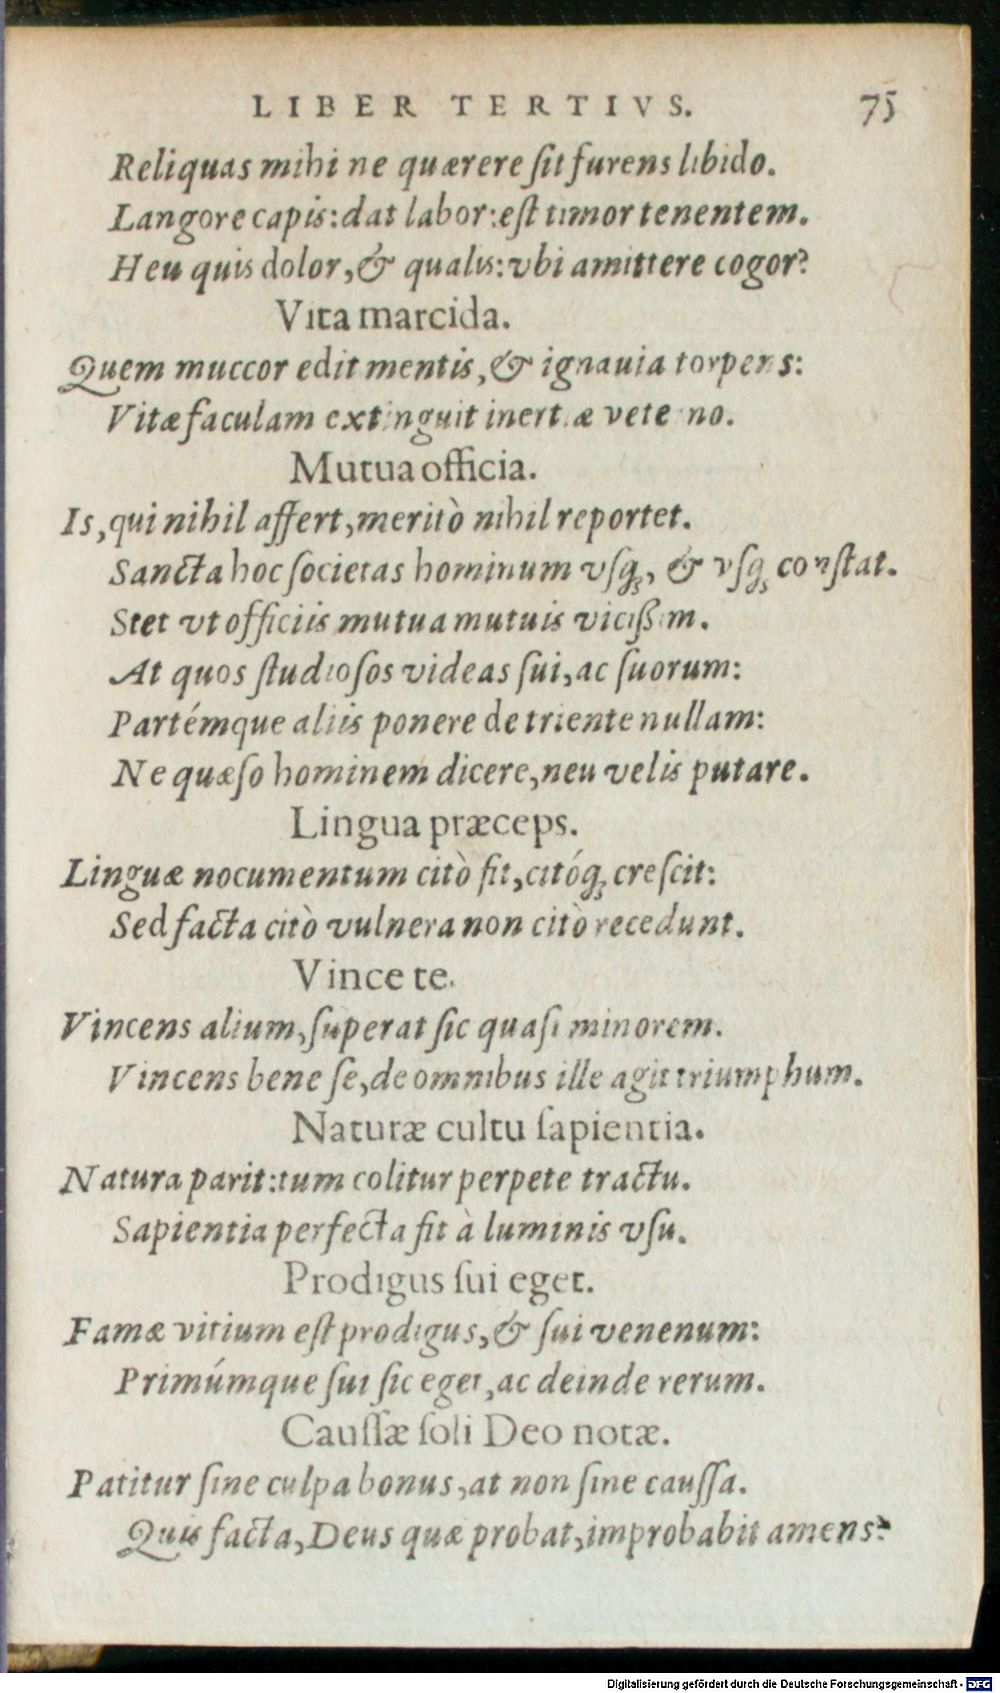 LIBER TERTIVS. 75
Reliquas mihi ne quærere ſit furens libido.
Langore capis: dat labor: eſt timor tenentem.
Heu quis dolor, & qualis: vbi amittere cogor?
Vita marcida.
Quem muccor edit mentis, & ignauia torpens:
Vitæ faculam extinguit inertiæ veterno.
Mutua officia.
Is, qui nihil affert, meritò nihil reportet.
Sancta hoc ſocietas hominum vſq;, & vſq; conſtat.
Stet vt officiis mutua mutuis vicißim.
At quos ſtudioſos videas ſui, ac ſuorum:
Partémque aliis ponere de triente nullam:
Ne quæſo hominem dicere, neu velis putare.
Lingua præceps.
Linguæ nocumentum citò fit, citóq; creſcit:
Sed facta citò vulnera non citò recedunt.
Vince te.
Vincens alium, ſuperat ſic quaſi minorem.
Vincens bene ſe, de omnibus ille agit triumphum.
Naturæ cultu ſapientia.
Natura parit: tum colitur perpete tractu.
Sapientia perfecta fit à luminis vſu.
Prodigus ſui eget.
Famæ vitium eſt prodigus, & ſui venenum:
Primúmque ſui ſic eget, ac deinde rerum.
Cauſſæ ſoli Deo notæ.
Patitur ſine culpa bonus, at non ſine cauſſa.
Quis facta, Deus quæ probat, improbabit amens?
Digitalisierung gefördert durch die Deutsche Forschungsgemeinschaft - DFG